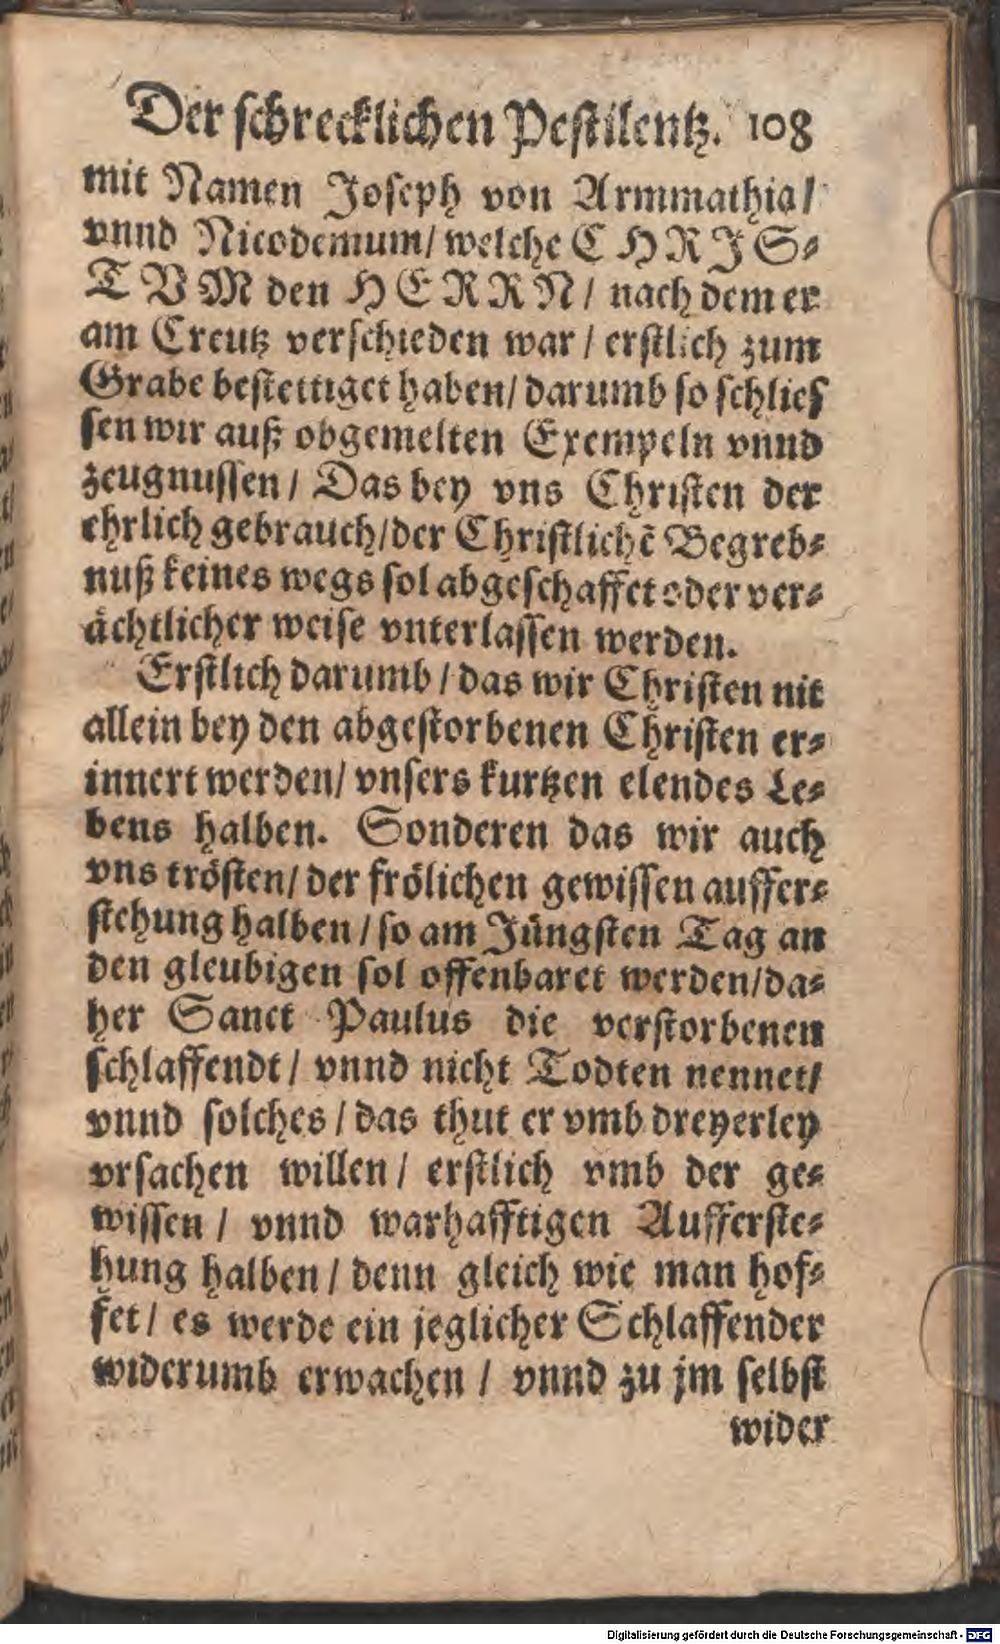 Der schrecklichen Pestilentz. 108
mit Namen Joseph von Armmathia/
vnnd Nicodemum/ welche CHRIS⸗
TVM den HERRN/ nach dem er
am Creutz verschieden war/ erstlich zum
Grabe bestettiget haben/ darumb so schlies
sen wir auß obgemelten Exempeln vnnd
zeugnussen/ Das bey vns Christen der
ehrlich gebrauch/der Christlichẽ Begreb⸗
nuß keines wegs sol abgeschaffet oder ver⸗
ächtlicher weise vnterlassen werden.
Erstlich darumb/ das wir Christen nit
allein bey den abgestorbenen Christen er⸗
innert werden/ vnsers kurtzen elendes Le⸗
bens halben. Sonderen das wir auch
vns trösten/ der frölichen gewissen auffer⸗
stehung halben/ so am Jüngsten Tag an
den gleubigen sol offenbaret werden/da⸗
her Sanct Paulus die verstorbenen
schlaffendt/ vnnd nicht Todten nennet/
vnnd solches/ das thut er vmb dreyerley
vrsachen willen/ erstlich vmb der ge⸗
wissen/ vnnd warhafftigen Aufferste⸗
hung halben/ denn gleich wie man hof⸗
fet/ es werde ein jeglicher Schlaffender
widerumb erwachen/ vnnd zu jm selbst
wider
Digitalisierung gefördert durch die Deutsche Forschungsgemeinschaft - DFG